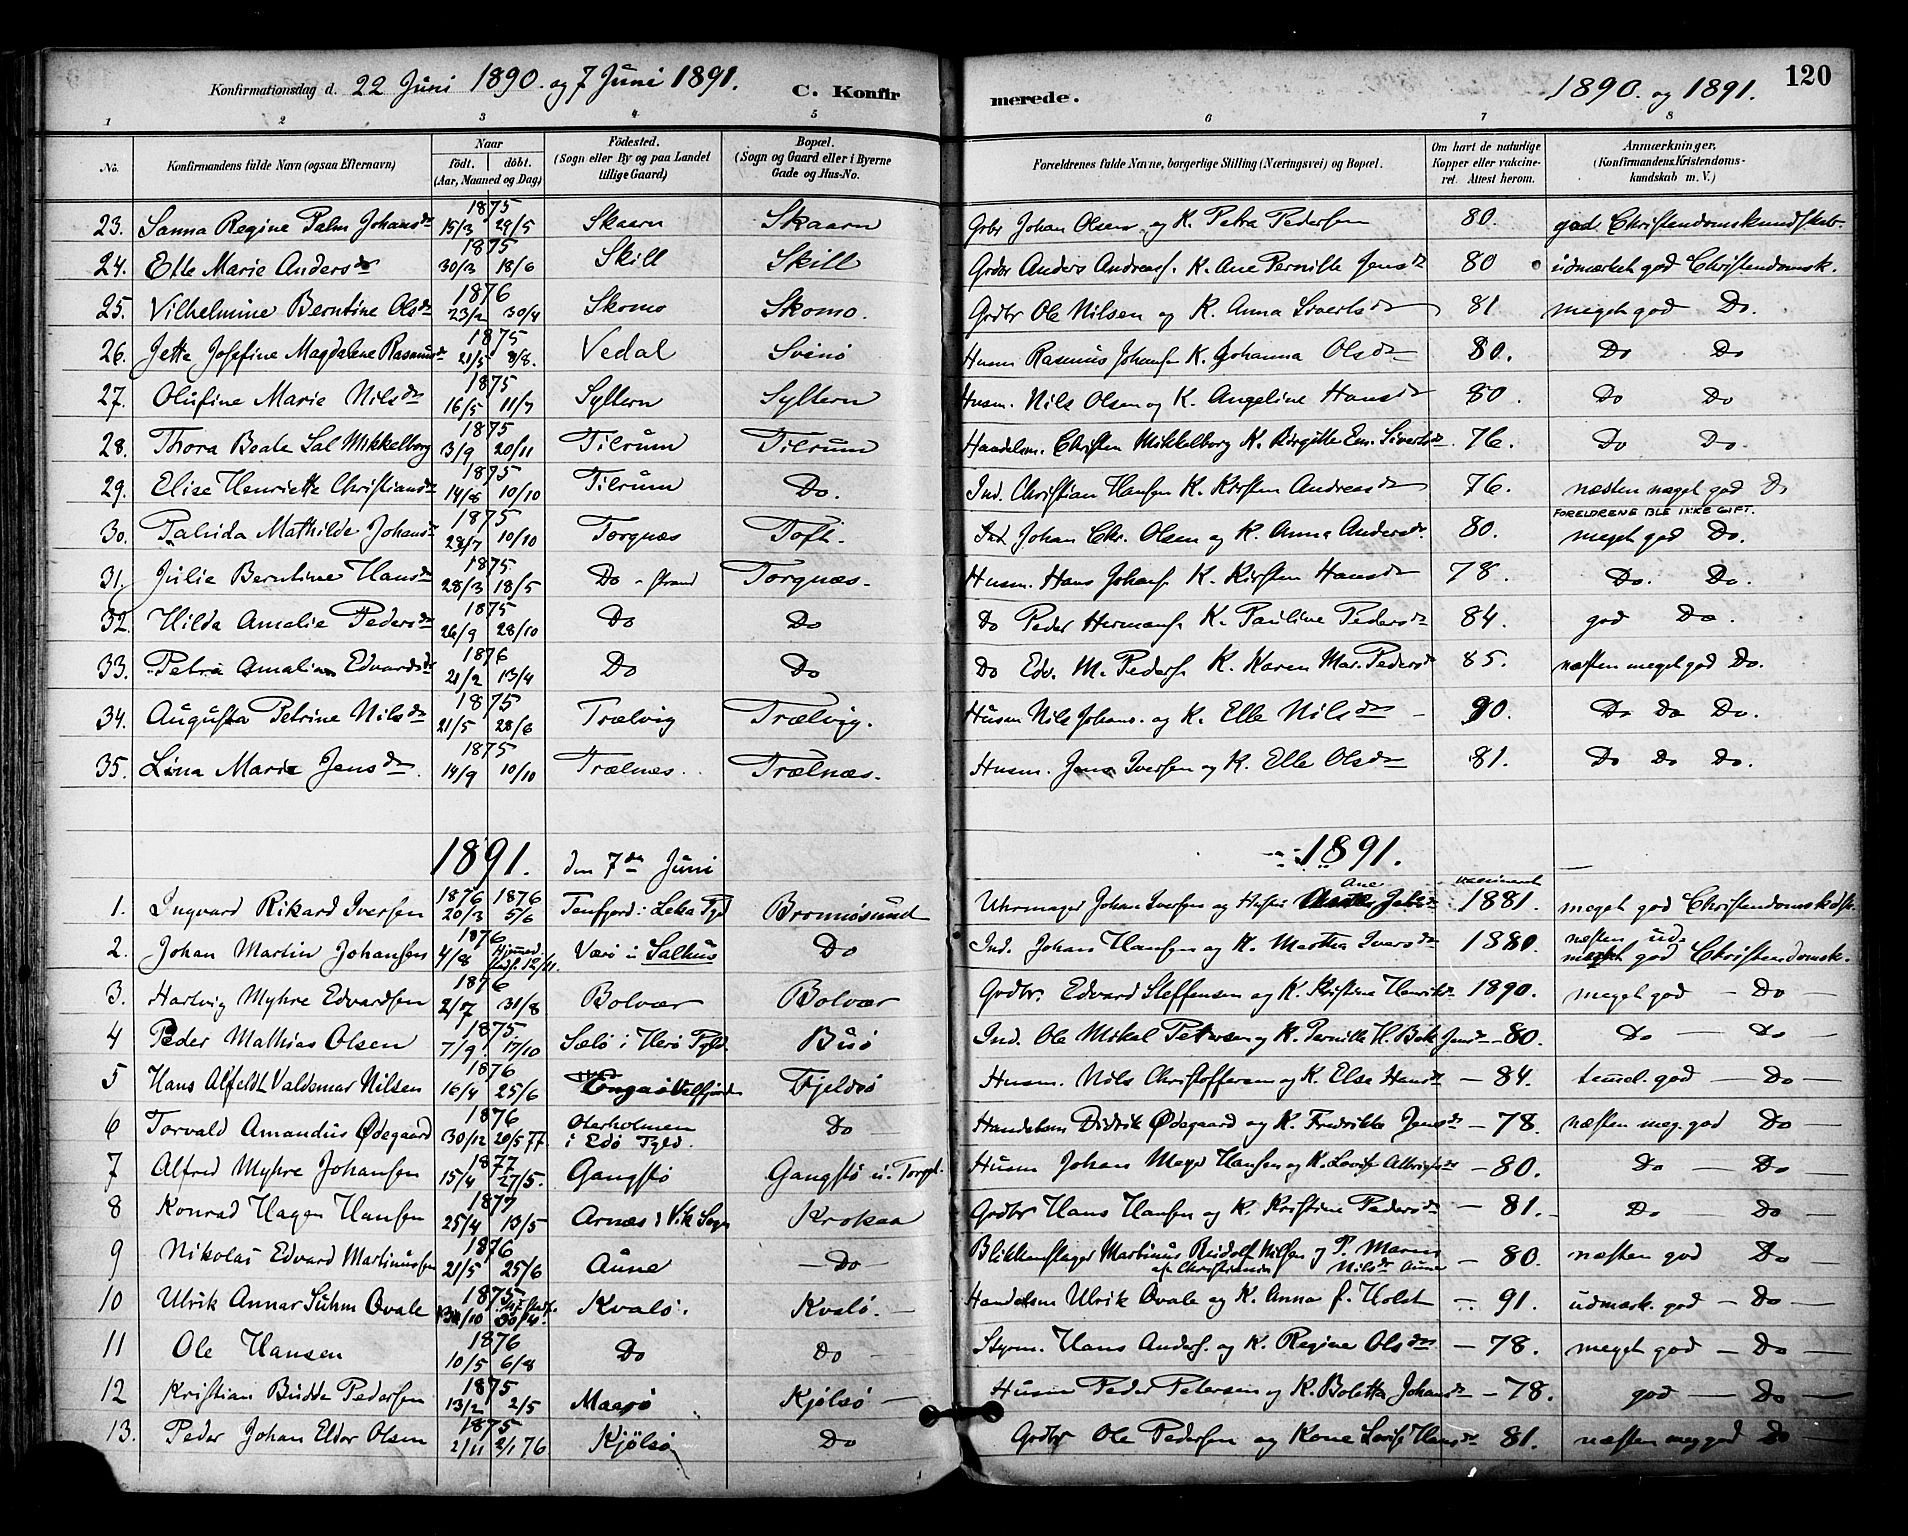 Konfirmationsdag d. 22 Juni 1890. og 7 Juni 1891. C. Konfirmerede. 1890. og 1891. 120
1 2 3 4 5 6 7 8
No. Konfirmandens fulde Navn (ogsaa Efternavn) Naar født. døbt. (Aar, Maaned og Dag) Födested. (Sogn eller By og paa Landet tillige Gaard) Bopæl. (Sogn og Gaard eller i Byerne Gade og Hus-No. Forældrenes fulde Navne, borgerlige Stilling (Næringsvei) og Bopæl. Om havt de naturlige Kopper eller vakcineret. Attest herom. Anmærkninger. (Konfirmandens Kristendomskundskab m. V.)
23. Sanna Regine Palm Johansdr 1875 15/3 29/5 Skaarn Skaarn Grbr Johan Olsen og K. Petra Pedersen 80. god Christendomskundskab.
24. Elle Marie Andersdr 1875 30/3 18/6 Skill Skill Grdbr Anders Andreass. K. Ane Pernille Jensdr 80 udmærket god Christendomsk.
25. Vilhelmine Berntine Olsdr 1876 23/2 30/4 Skomo Skomo. Grdbr Ole Nilsen og K. Anna Sivertsdr 81 meget god Do.
26. Jette Josefine Magdalene Rasmusdr 1875 21/5 8/8. Vedal Svinö Husm Rasmus Johansen K. Johanna Olsdr 80. Do Do
27. Olufine Marie Nilsdr 1875 16/5 11/7 Syltern Syltern Husm. Nils Olsen og K. Angeline Hansdr 80. Do Do
28. Thora Beate Sal Mikkelborg 1875 3/9 20/11 Tilrum Tilrum Handelsm. Christen Mikkelborg K. Birgitte Em. Sivertsdr 76. Do Do.
29. Elise Henriette Christiansdr 1875 14/8 10/10 Tilrum Do. Ind. Christian Hansen K. Kirsten Andreasdr 76. næsten meget god Do
FORELDRENE BLE IKKE GIFT.
30. Palnida Mathilde Johansdr 1875 28/7 10/10 Torgnæs Toft. Ind Johan Chr. Olsen og K. Anna Andersdr. 80. meget god Do.
31. Julie Berntine Hansdr 1875. 28/3 18/5 Do - strand Torgnæs. Husm. Hans Johans. K. Kirsten Hansdr 78. Do. Do.
32. Hilda Amalie Pedersdr 1875 26/9 28/10 Do Do Do Peder Hermans. K. Pauline Pedersdr 84. god Do.
33. Petra Amalie Edvardsdr 1876 21/2 13/4 Do Do Do Edv. M. Peders. K. Karen Mar. Pedersdr 85. næsten meget god Do.
34. Augusta Petrine Nilsdr 1875 21/5 28/6 Trælvig Trælvig. Husm Nils Johans. og K. Elle Nilsdr 90. Do Do Do.
35. Lina Marie Jensdr 1875 14/9 10/10 Trælnæs. Trælnæs. Husm. Jens Iversen og K. Elle Olsdr 81. Do Do Do.
1891. den 7de Juni 1891.
1. Ingvard Rikard Iversen 1876 20/3 1876 5/6 Tenfjord i Leka Pgld Brönnösund Uhrmager Johan Iversen og Hustru Ane Jakobsdr vaccineret 1881. meget god Christendomskdsk.
2. Johan Martin Johansen 1876 4/8 Hjemmed. 12/11. Værö i Salhus Do Ind. Johan Hansen og K. Martha Iversdr 1880. næsten udmærket god Christendomsk.
3. Hartvig Myhre Edvardsen 1876 2/7 31/8 Bolvær Bolvær Grdbr. Edvard Steffensen og K. Kristine Henriksdr 1890. meget god - Do -
4 Peder Mathias Olsen 1875 7/9. 17/10 Sælö i Herö Pgld. Buö Ind. Ole Mikal Petersen og K. Pernille H. Bek Jensdr - 80. Do - Do -
5 Hans Alfeldt Valdemar Nilsen 1876 16/4 25/6 Velfjorden Fjeldsö Husm. Nils Christoffersen og K. Else Hansdr - 84. temmel. god - Do -
6 Torvald Amandus Ødegaard 1876 30/12 20/5 77. Oterholmen i Edö Pgld. Do - Handelsm Didrik Ødegaard og K. Fredrikke Jensdr - 78. næsten meg. god Do -
7 Alfred Myhre Johansen 1877 15/4 27/5. Gangstö Gangstö u. Torget. Husm Johan Meyer Hansen og K. Lovise Albrigtsdr - 80. Do - Do -
8 Konrad Hagen Hansen 1877 25/4 13/5 Arnæs i Vik Sogn Krokaa Grdbr Hans Hansen og K. Kristine Pedersdr - 81. Do - Do -
9 Nikolai Edvard Martinussen 1876 21/5 25/6 Aune - Do - Blikkenslager Martinus Rudolf Nilsen af Christiania og P. Maren Nilsdr Aune - 80. næsten god Do -
10 Ulrik Annar Suhm Qvale 1875 30/10 30/4. Kvalö. Kvalö. - Handelsm Ulrik Qvale og K. Anna f. Holst - 91. udmærk. god - Do -
11 Ole Hansen 1876 10/5 6/8 Do Do - Styrm. Hans Anders. og K. Regine Olsdr - 78. meget god - Do -
12 Kristian Budde Pedersen 1875 13/2 2/5 Maarö Kjölsö - Husm Peder Petersen og K. Boletta Johansdr - 78. god - Do -
13. Peder Johan Eldor Olsen 1875 2/11 2/1 76 Kjölsö Do Grdbr Ole Pedersen og Kone Lovise Hansdr - 81. næsten meg god Do -